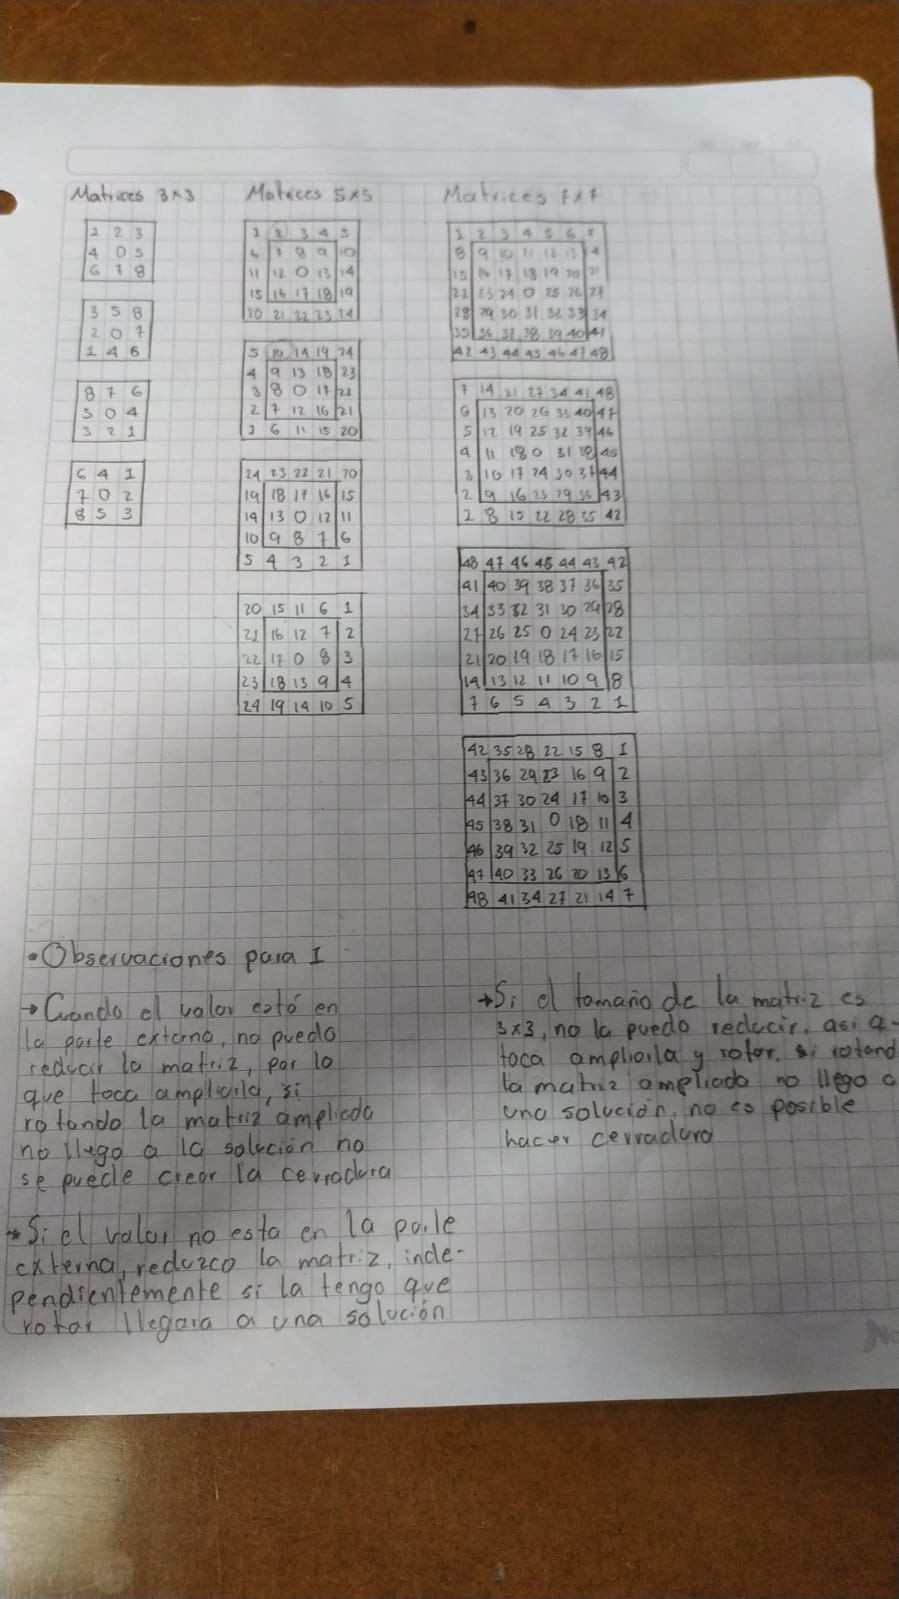 Matrices 3x3
1 2 3
4 0 5
6 7 8
3 5 8
2 0 7
1 4 6
8 7 6
5 0 4
3 2 1
6 4 1
7 0 2
8 5 3
Matrices 5x5
1 2 3 4 5
6 7 8 9 10
11 12 0 13 14
15 16 17 18 19
20 21 22 23 24
5 10 14 19 24
4 9 13 18 23
3 8 0 17 22
2 7 12 16 21
1 6 11 15 20
24 23 22 21 20
19 18 17 16 15
14 13 0 12 11
10 9 8 7 6
5 4 3 2 1
20 15 11 6 1
21 16 12 7 2
22 17 0 8 3
23 18 13 9 4
24 19 14 10 5
Matrices 7x7
1 2 3 4 5 6 7
8 9 10 11 12 13 14
15 16 17 18 19 20 21
22 23 24 0 25 26 27
28 29 30 31 32 33 34
35 36 37 38 39 40 41
42 43 44 45 46 47 48
7 14 21 27 34 41 48
6 13 20 26 33 40 47
5 12 19 25 32 39 46
4 11 18 0 31 38 45
3 10 17 24 30 37 44
2 9 16 23 29 36 43
1 8 15 22 28 35 42
48 47 46 45 44 43 42
41 40 39 38 37 36 35
34 33 32 31 30 29 28
27 26 25 0 24 23 22
21 20 19 18 17 16 15
14 13 12 11 10 9 8
7 6 5 4 3 2 1
42 35 28 22 15 8 1
43 36 29 23 16 9 2
44 37 30 24 17 10 3
45 38 31 0 18 11 4
46 39 32 25 19 12 5
47 40 33 26 20 13 6
48 41 34 27 21 14 7
• Observaciones para I
→ Cuando el valor está en
la parte externa, no puedo
reducir la matriz, por lo
que toca ampliarla, si
rotando la matriz ampliada
no llego a la solución no
se puede crear la cerradura
→ Si el valor no esta en la parte
externa, reduzco la matriz, inde-
pendientemente si la tengo que
rotar llegara a una solución
→ Si el tamaño de la matriz es
3x3, no la puedo reducir, asi q-
toca ampliarla y rotar, si rotand
la matriz ampliada no llego a
una solución, no es posible
hacer cerradura